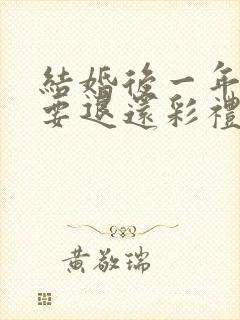 結婚後一年
要退還彩禮
黃敬瑞